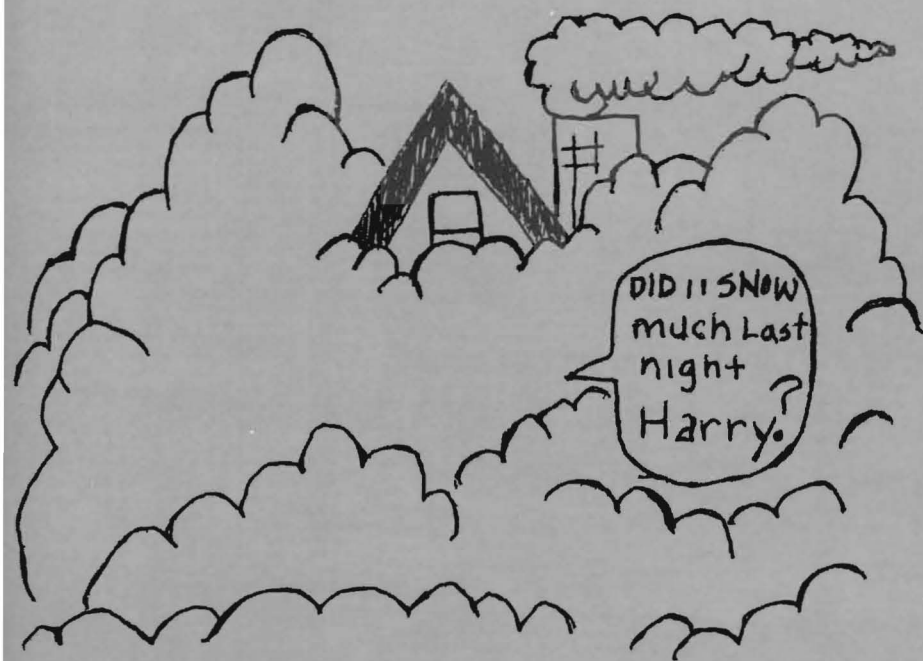 DID IT SNOW
much Last
night
Harry?